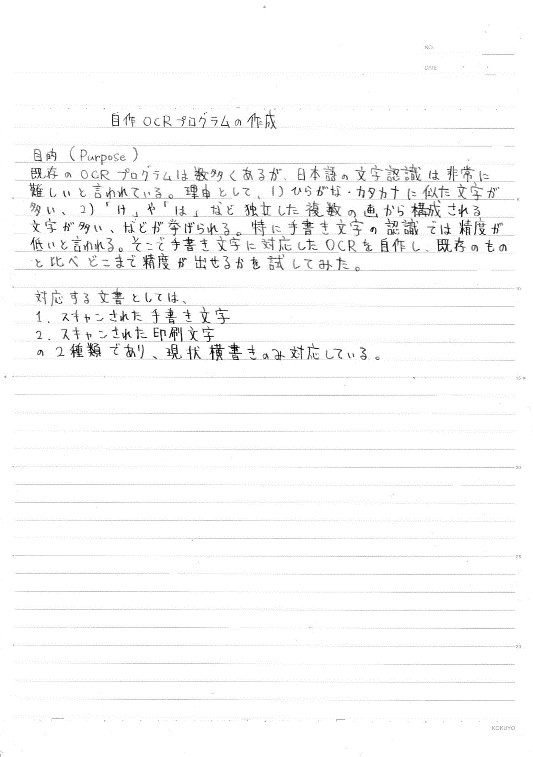 NO.
DATE
自作OCRプログラムの作成
目的（Purpose）
既存のOCRプログラムは数多くあるが、日本語の文字認識は非常に
難しいと言われている。理由として、1）ひらがな・カタカナに似た文字が
多い、2）「け」や「は」など独立した複数の画から構成される
文字が多い、などが挙げられる。特に手書き文字の認識では精度が
低いと言われる。そこで手書き文字に対応したOCRを自作し、既存のもの
と比べどこまで精度が出せるかを試してみた。
対応する文書としては、
1. スキャンされた手書き文字
2. スキャンされた印刷文字
の2種類であり、現状横書きのみ対応している。
KOKUYO